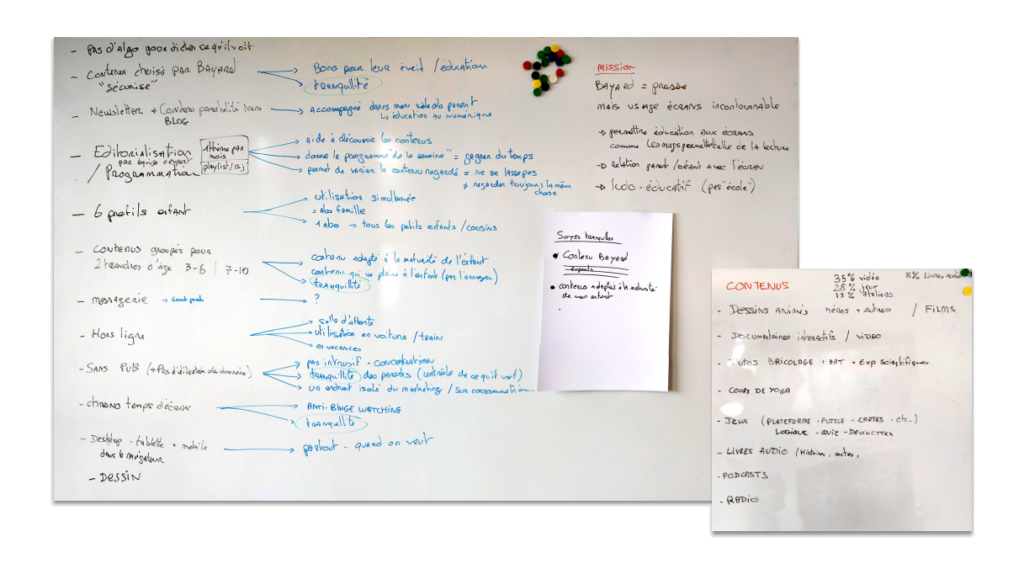 - Pas d'algo pour dicter ce qu'il voit
- Contenu choisi par Bayard
"sécurisé"
→ Bons pour leur éveil / éducation
→ tranquillité
- Newsletter + Contenu parentalité
BLOG
→ accompagné dans mon rôle de parent
↳ éducation au numérique
- Editorialisation
/ Programmation
1 thème par
mois
playlist
→ aide à découvrir les contenus
→ donne le programme "de la semaine" = gagner du temps
→ permet de varier le contenu regardé = ne se lasse pas
≠ regarder toujours la même
chose
- 6 profils enfant
→ utilisation simultanée
= abo famille
→ 1 abo → tous les petits enfants / cousins
- Contenus groupés pour
2 tranches d'âge 3-6 | 7-10
→ contenu adapté à la maturité de l'enfant
contenu qui va plaire à l'enfant (pas l'ennuyer)
tranquillité
- messagerie →
→ ?
- Hors ligne
→ salle d'attente
→ utilisation en voiture / train
→ en vacances
- SANS PUB (+ Pas d'utilisation de données)
→ pas intrusif - concentration
→ tranquillité des parents (contrôle de ce qu'il voit)
→ un endroit isolé du marketing / sur consommation
- chrono temps d'écran
→ ANTI-BINGE WATCHING
→ tranquillité
- Desktop - tablette + mobile
dans le navigateur
→ partout - quand on veut
- DESSIN
Mission
BAYARD = presse
MAIS USAGE ÉCRANS incontournable
→ permettre éducation aux écrans
comme les mags permettent celle de la lecture
→ Relation parent / enfant avec l'écran
→ ludo-éducatif (pas "école")
Soyez tranquilles
• Contenu Bayard
experts
• contenus adaptés à la maturité
de mon enfant
CONTENUS
35% vidéo
28% jeux
13% Ateliers
8% Livres audio
- Dessins animés, héros + autres / FILMS
- Documentaires interactifs / VIDEO
- Tutos BRICOLAGE + ART + Exp scientifiques
- COURS DE YOGA
- Jeux (PLATEFORME - PUZZLE - CARTES - etc..)
LOGIQUE - QUIZ - DEVINETTES
- LIVRES AUDIO (Histoires,
- PODCASTS
- RADIO